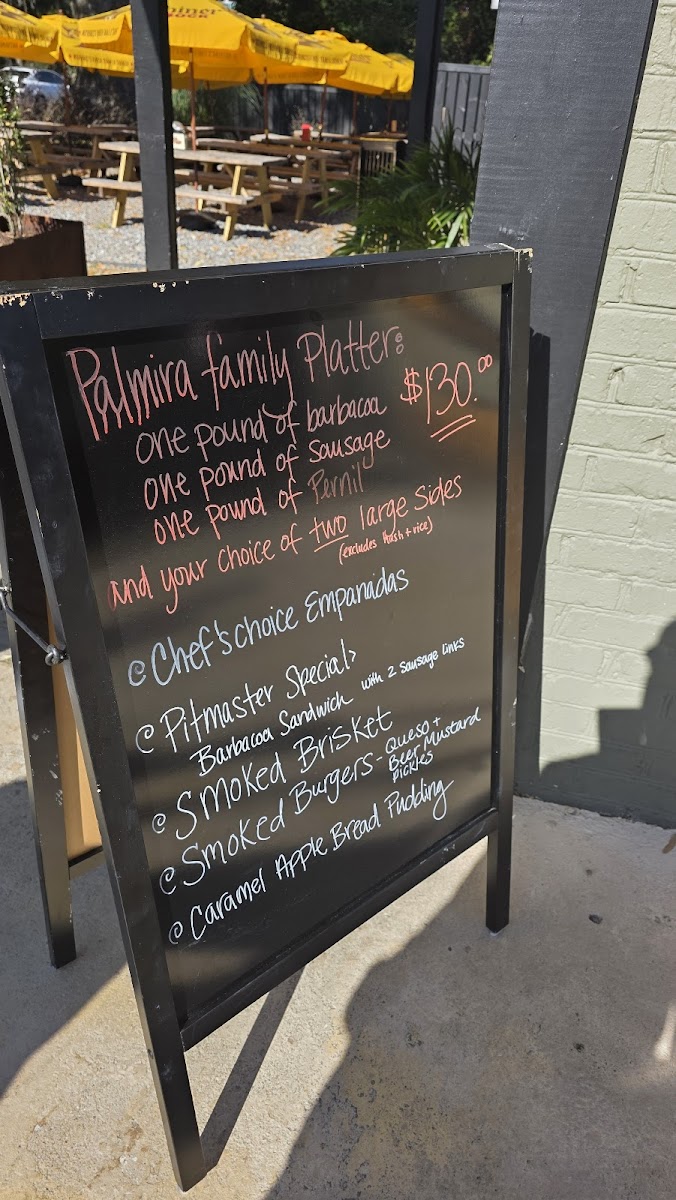 Palmira family Platter:
$130.00
one pound of barbacoa
one pound of Sausage
one pound of Pernil
and your choice of two large Sides
(excludes hash + rice)
Chef's choice Empanadas
Pitmaster Special>
Barbacoa Sandwich with 2 sausage links
Smoked Brisket
Smoked Burgers - Queso +
Beer Mustard
Pickles
Caramel Apple Bread Pudding